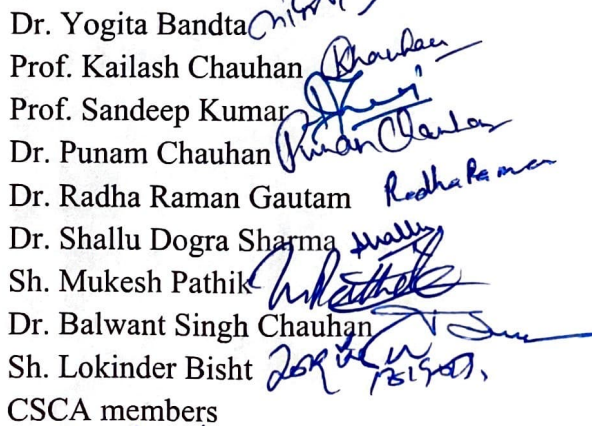 Dr. Yogita Bandta
Prof. Kailash Chauhan Khauhan
Prof. Sandeep Kumar
Dr. Punam Chauhan Punan Chauhan
Dr. Radha Raman Gautam Radha Raman
Dr. Shallu Dogra Sharma Shallu
Sh. Mukesh Pathik
Dr. Balwant Singh Chauhan
Sh. Lokinder Bisht
CSCA members